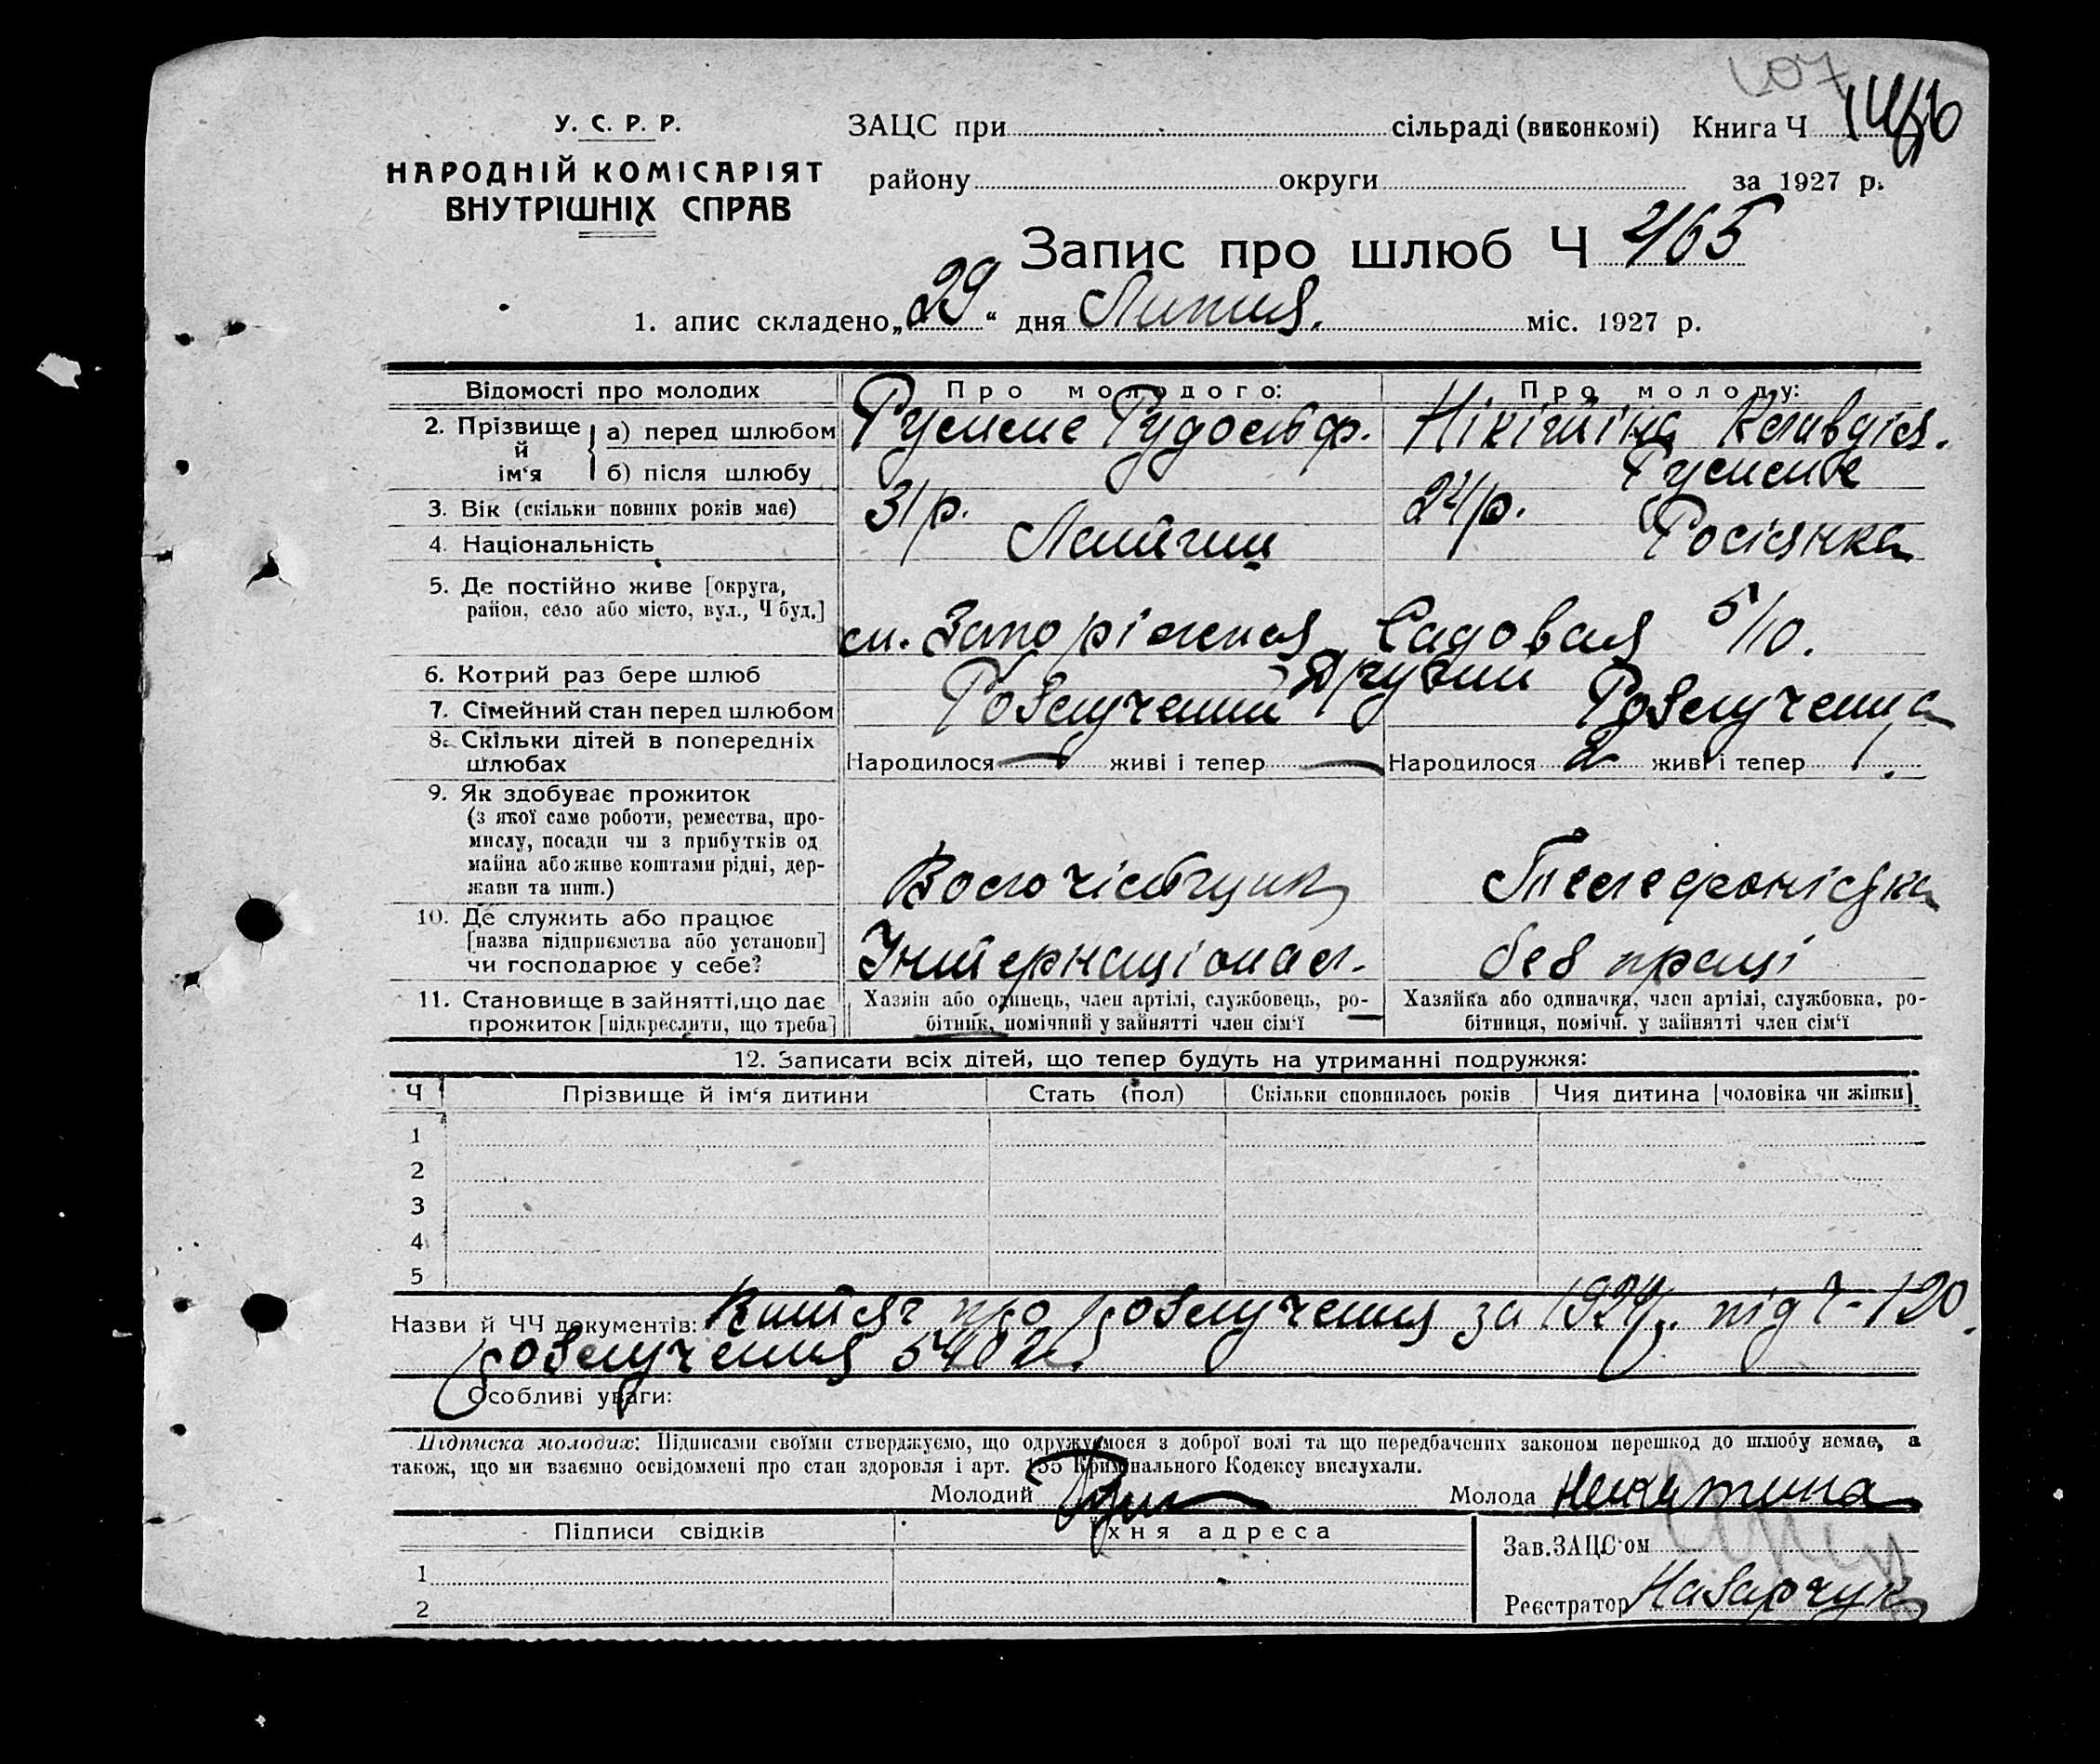 У. С. Р. Р.
НАРОДНІЙ КОМІСАРІЯТ
ВНУТРІШНІХ СПРАВ
107
ЗАЦС при сільраді (виконкомі) Книга Ч
району округи за 1927 р.
Запис про шлюб Ч 465
1. апис складено „29“ дня Липня. міс. 1927 р.
Відомості про молодих Про молодого: Про молоду:
2. Прізвище й ім‘я а) перед шлюбом Рудольф. Нікітіна Клавдія.
б) після шлюбу
3. Вік (скільки повних років має) 31 р. 24 р.
4. Національність Латиш Росіянка
5. Де постійно живе [округа,
район, село або місто, вул., Ч буд.] м. Запоріжжя Садовая 5/10.
6. Котрий раз бере шлюб Другий
7. Сімейний стан перед шлюбом Розлучений Розлучениця
8. Скільки дітей в попередніх
шлюбах Народилося — живі і тепер — Народилося 2 живі і тепер 1.
9. Як здобуває прожиток
(з якої саме роботи, ремества, про-
мислу, посади чи з прибутків од
майна або живе коштами рідні, дер-
жави та инш.) Телефоністка
10. Де служить або працює
[назва підприємства або установи]
чи господарює у себе? Інтернаціонал. без праці
11. Становище в зайнятті, що дає
прожиток [підкреслити, що треба]
Хазяїн або одинець, член артілі, службовець, ро-
бітник, помічний у зайнятті член сім‘ї
Хазяйка або одиначка, член артілі, службовка, ро-
бітниця, помічн. у зайнятті член сім‘ї
12. Записати всіх дітей, що тепер будуть на утриманні подружжя:
Ч Прізвище й ім‘я дитини Стать (пол) Скільки сповнилось років Чия дитина [чоловіка чи жінки]
1
2
3
4
5
Назви й ЧЧ документів: Витяг про розлучення за 1927 р. під Ч-120.
розлучення
Особливі уваги:
Підписка молодих: Підписами своїми стверджуємо, що одружуємося з доброї волі та що передбачених законом перешкод до шлюбу немає, а
також, що ми взаємно освідомлені про стан здоровля і арт. 155 Кримінального Кодексу вислухали.
Молодий Молода Никитина
Підписи свідків Їхня адреса
Зав. ЗАЦС‘ом
1
Реєстратор Назарчук
2